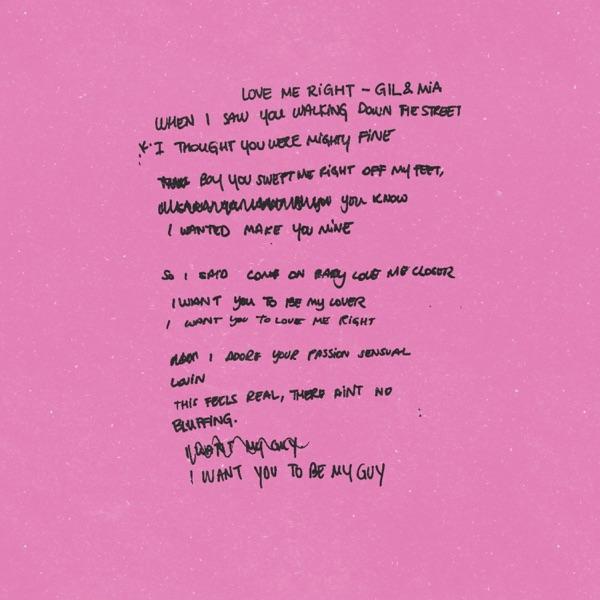 LOVE ME RIGHT - GIL & MIA
WHEN I SAW YOU WALKING DOWN THE STREET
I THOUGHT YOU WERE MIGHTY FINE
BOY YOU SWEPT ME RIGHT OFF MY FEET,
YOU KNOW
I WANTED MAKE YOU MINE
SO I SAID COME ON BABY LOVE ME CLOSER
I WANT YOU TO BE MY LOVER
I WANT YOU TO LOVE ME RIGHT
I ADORE YOUR PASSION SENSUAL
LOVIN
THIS FEELS REAL, THERE AINT NO
BLUFFING.
I WANT YOU TO BE MY GUY